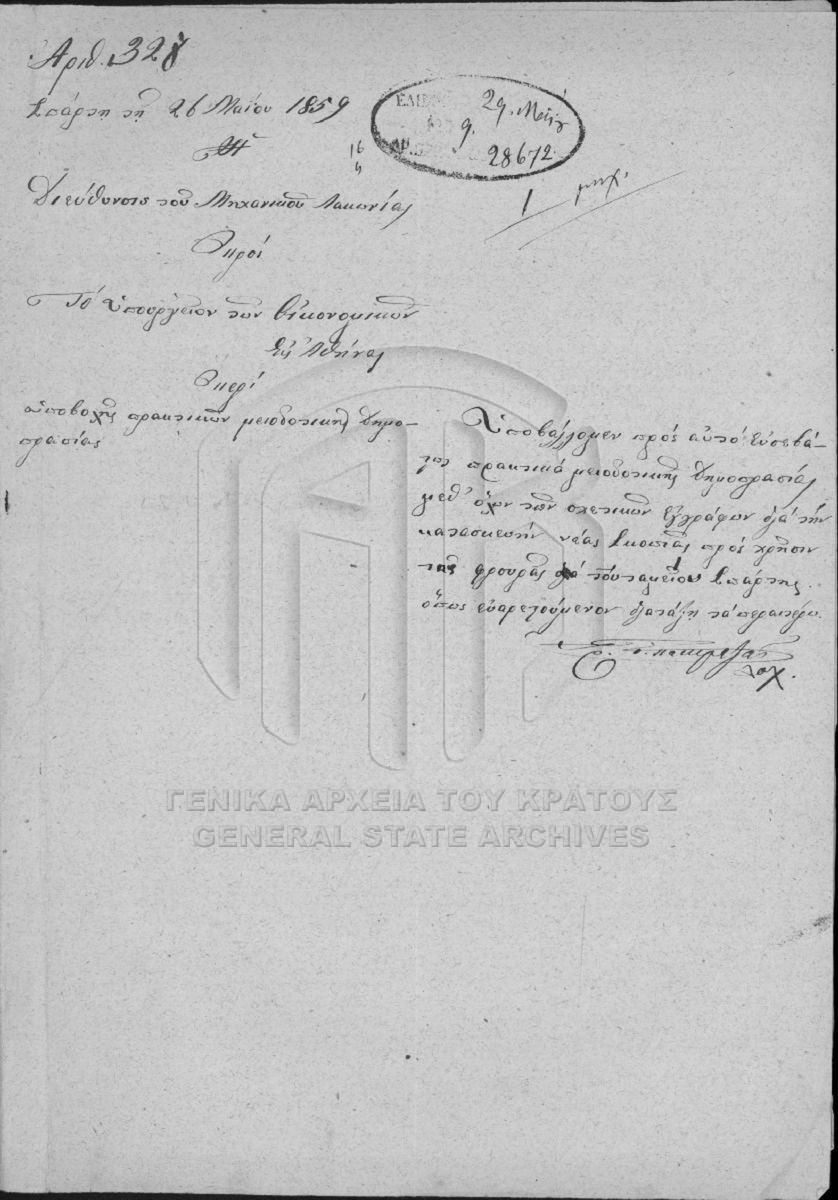 Αριθ. 328
Σπάρτη τη 26 Μαΐου 1859
29. Μαΐου
9.
28672
16
4
1 μηχ.
Η
Διεύθυνσις του Μηχανικού Λακωνίας
Προς
Το Υπουργείον των Οικονομικών
Εις Αθήνας
Περί
υποβολής πρακτικών μειοδοτικής δημο-
πρασίας
Υποβάλλομεν προς αυτό ευσεβά-
στως πρακτικά μειοδοτικής δημοπρασίας
μεθ' όλων των σχετικών εγγράφων διά την
κατασκευήν νέας σκοπιάς προς χρήσιν
της φρουράς του ταμείου Σπάρτης
όπως ευαρεστούμενον διατάξη τα περαιτέρω.
λοχ.
ΓΕΝΙΚΑ ΑΡΧΕΙΑ ΤΟΥ ΚΡΑΤΟΥΣ
GENERAL STATE ARCHIVES